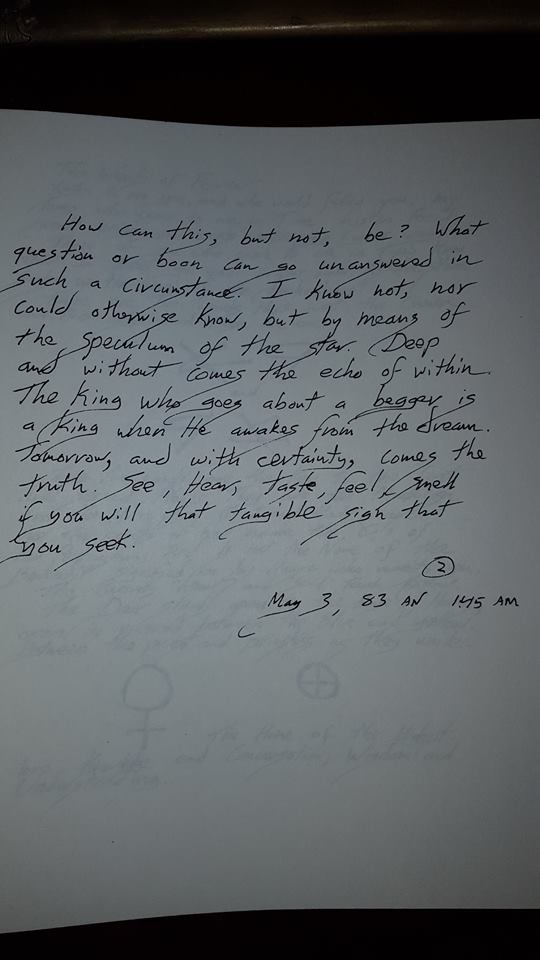 How can this, but not, be? What
question or boon can go unanswered in
such a circumstance. I know not, nor
could otherwise know, but by means of
the speculum of the star. Deep
and without comes the echo of within.
The King who goes about a beggar is
a King when He awakes from the dream.
Tomorrow, and with certainty, comes the
truth. See, Hear, taste, feel, smell
if you will that tangible sign that
you seek.
2
May 3, 83 AN 1:45 AM